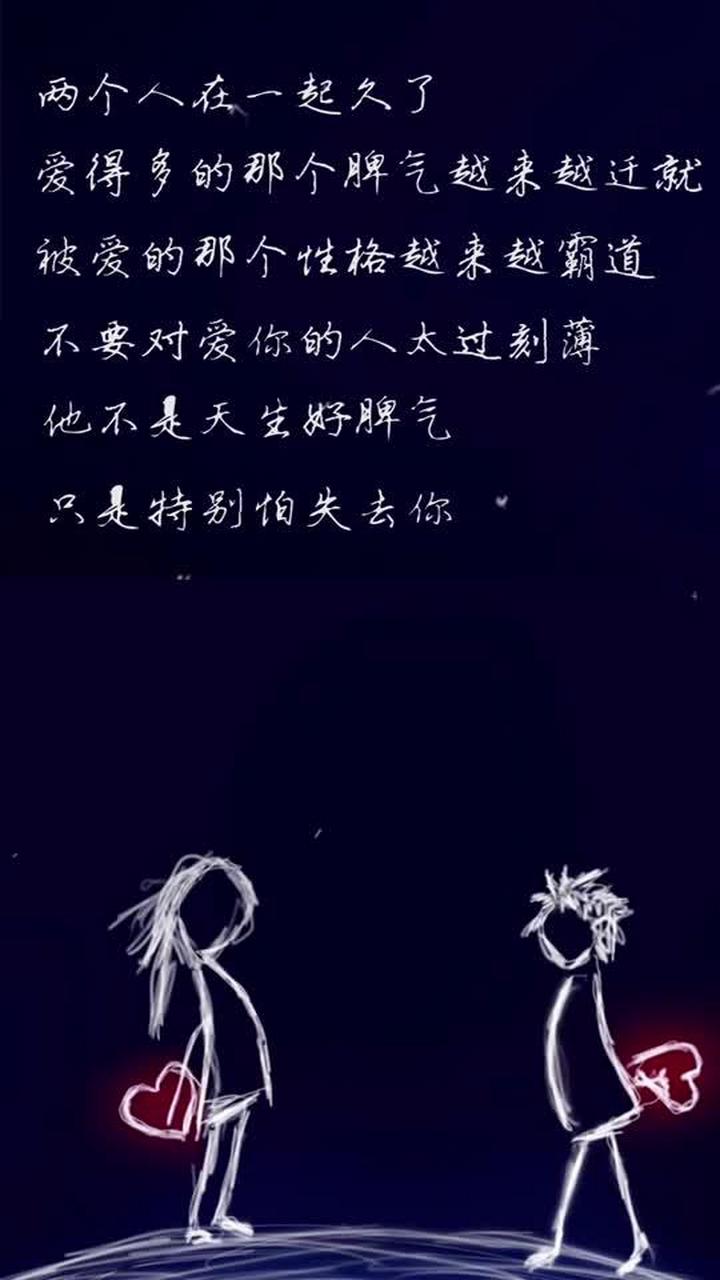 两个人在一起久了
爱得多的那个脾气越来越迁就
被爱的那个性格越来越霸道
不要对爱你的人太过刻薄
他不是天生好脾气
只是特别怕失去你